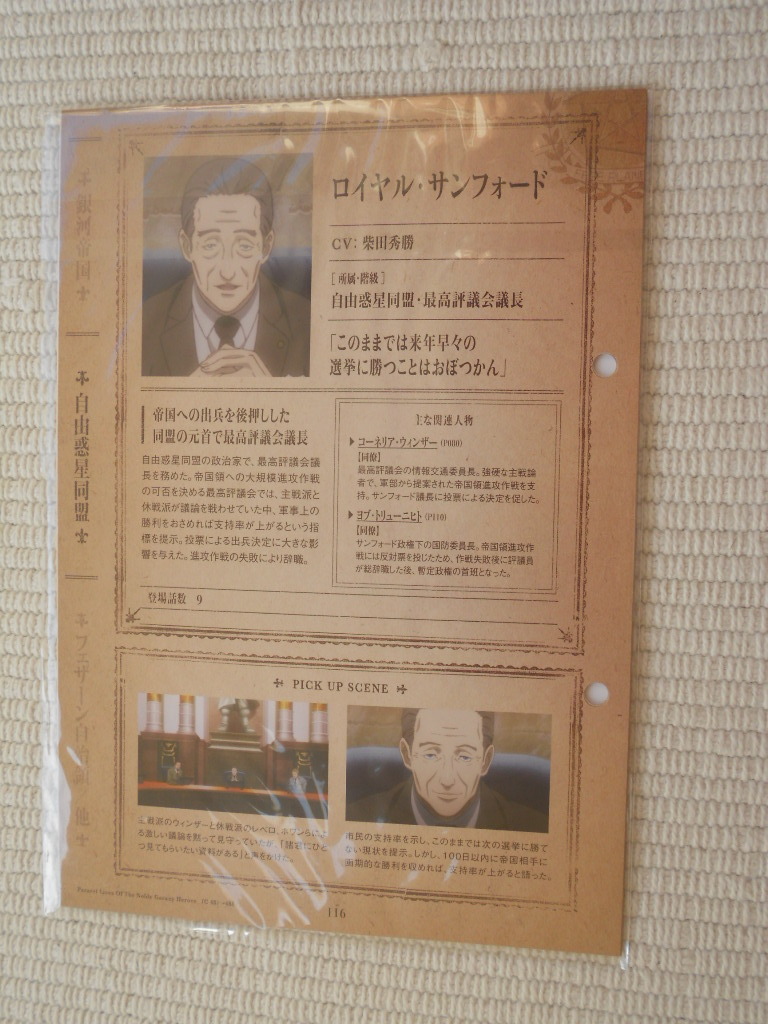 銀河帝国
自由惑星同盟
フェザーン自治領 他
ロイヤル・サンフォード
CV: 柴田秀勝
[ 所属・階級 ]
自由惑星同盟・最高評議会議長
「このままでは来年早々の
選挙に勝つことはおぼつかん」
帝国への出兵を後押しした
同盟の元首で最高評議会議長
自由惑星同盟の政治家で、最高評議会議
長を務めた。帝国領への大規模進攻作戦
の可否を決める最高評議会では、主戦派と
休戦派が議論を戦わせていた中、軍事上の
勝利をおさめれば支持率が上がるという指
標を提示。投票による出兵決定に大きな影
響を与えた。進攻作戦の失敗により辞職。
主な関連人物
▶コーネリア・ウィンザー (P080)
【同僚】
最高評議会の情報交通委員長。強硬な主戦論
者で、軍部から提案された帝国領進攻作戦を支
持。サンフォード議長に投票による決定を促した。
▶ヨブ・トリューニヒト (P110)
【同僚】
サンフォード政権下の国防委員長。帝国領進攻作
戦には反対票を投じたため、作戦失敗後に評議員
が総辞職した後、暫定政権の首班となった。
登場話数 9
PICK UP SCENE
主戦派のウィンザーと休戦派のレベロ、ホワンらによ
る激しい議論を黙って見守っていたが、「諸君にひと
つ見てもらいたい資料がある」と声をかけた。
市民の支持率を示し、このままでは次の選挙に勝て
ない現状を提示。しかし、100日以内に帝国相手に
画期的な勝利を収めれば、支持率が上がると語った。
116